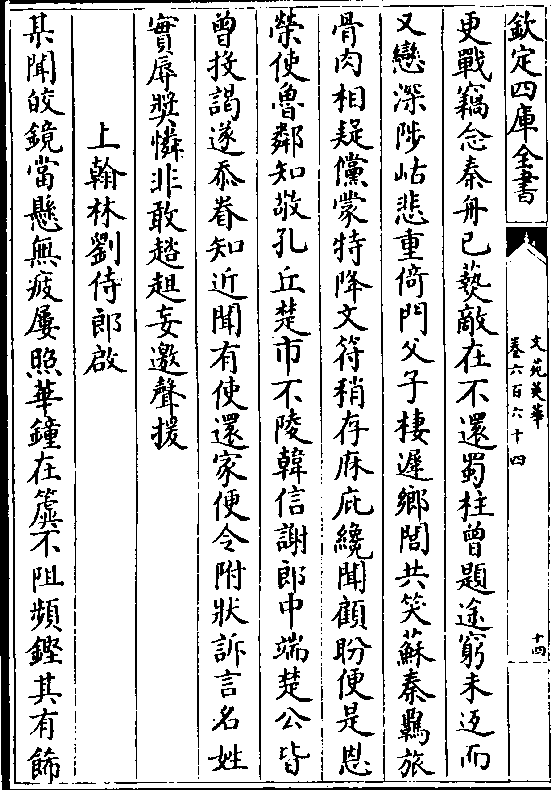 欽定四庫全書
文苑英華
卷六百六十四
十四
更戰竊念秦舟已爇敵在不還蜀柱曾題途窮未返而
又戀深陟岵悲重倚門父子棲遲鄉閭共笑蘇秦羈旅
骨肉相疑儻蒙特降文符稍存庥庇纔聞顧盼便是恩
榮使魯鄰知敬孔丘楚市不陵韓信謝郎中端楚公皆
曾投謁遂忝眷知近聞有使還家便令附狀訴言名姓
實辱奬憐非敢趦趄妄邀聲援
上翰林劉侍郎啟
某聞皎鏡當懸無疲屢照華鐘在簴不阻頻鏗其有飾